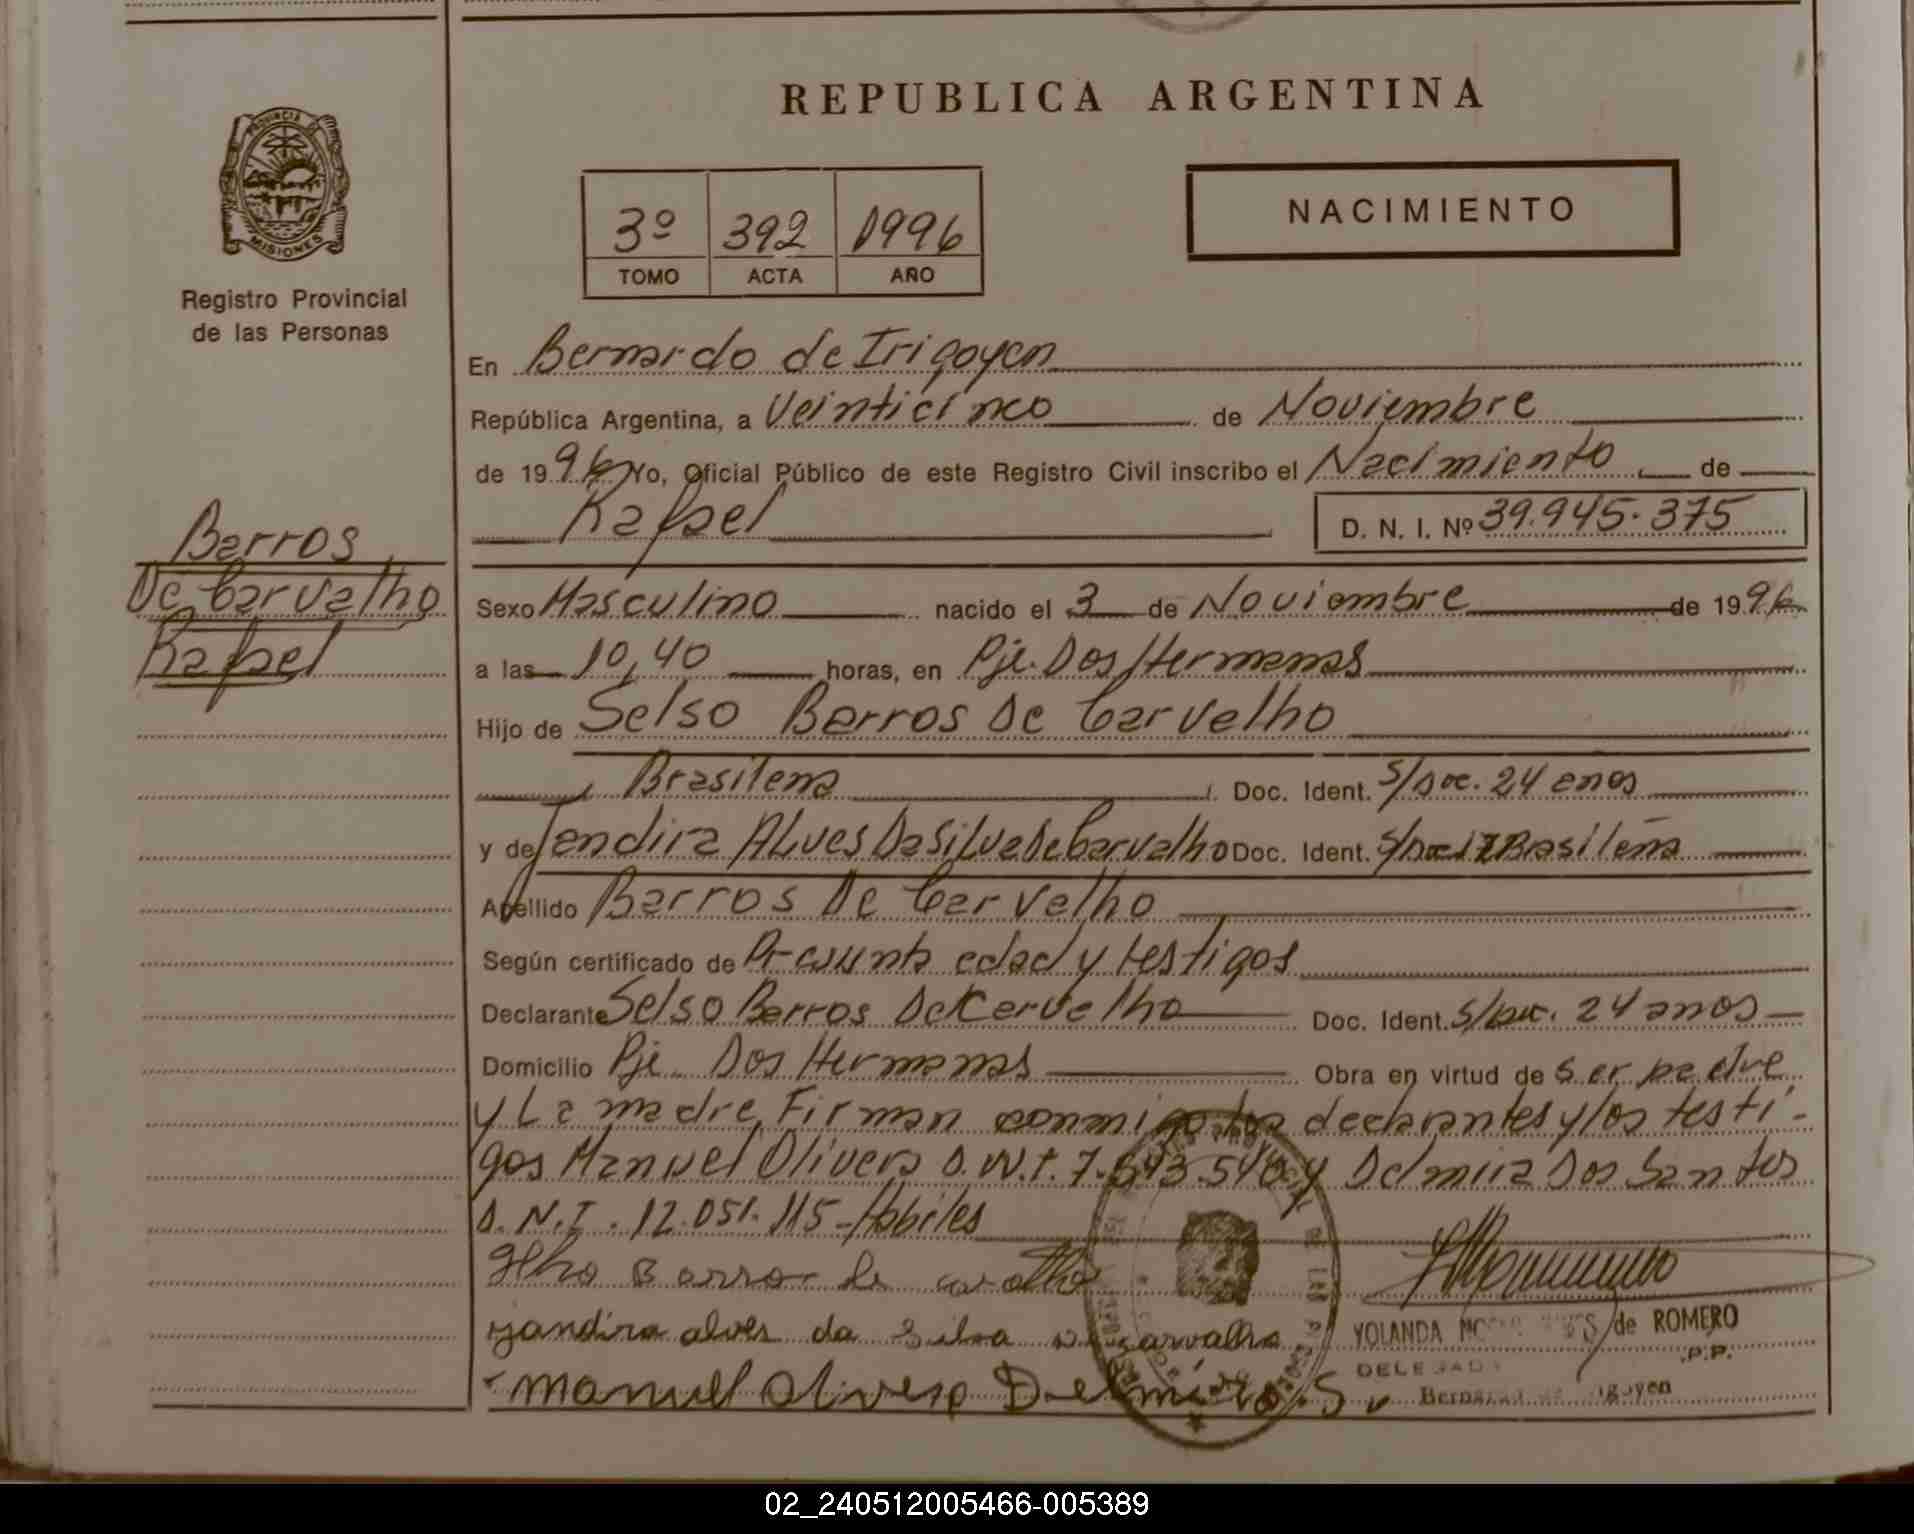 REPUBLICA ARGENTINA
PROVINCIA DE
MISIONES
Registro Provincial
de las Personas
3º 392 1996
TOMO ACTA AÑO
NACIMIENTO
En Bernardo de Irigoyen
República Argentina, a Veinticinco de Noviembre
de 1996 Yo, Oficial Público de este Registro Civil inscribo el Nacimiento de
Rafael D. N. I. Nº 39.945.375
Barros
De Carvalho
Rafael
Sexo Masculino nacido el 3 de Noviembre de 1996
a las 10,40 horas, en Pje. Dos Hermanas
Hijo de Selso Barros De Carvalho
Brasilena Doc. Ident. S/Doc. 24 años
y de Jandira ALves Da SiLva De Carvalho Doc. Ident. S/Doc 17 Brasileña
Apellido Barros De Carvalho
Según certificado de Presunta edad y testigos
Declarante Selso Barros De Carvalho Doc. Ident. S/Doc. 24 anos
Domicilio Pje. Dos Hermanas Obra en virtud de ser padre
y La madre, Firman conmigo los declarantes y los testi-
gos Manuel Olivera D.N.I. 7.643.546 y Delmira Dos Santos
D.N.I. 12.051.115-Habiles
Barros de
jandira alves da silva de carvalho
manuel olivera Delmira. S
YOLANDA de ROMERO
DELEGADA P.P.
Bernardo de Irigoyen
02_240512005466-005389